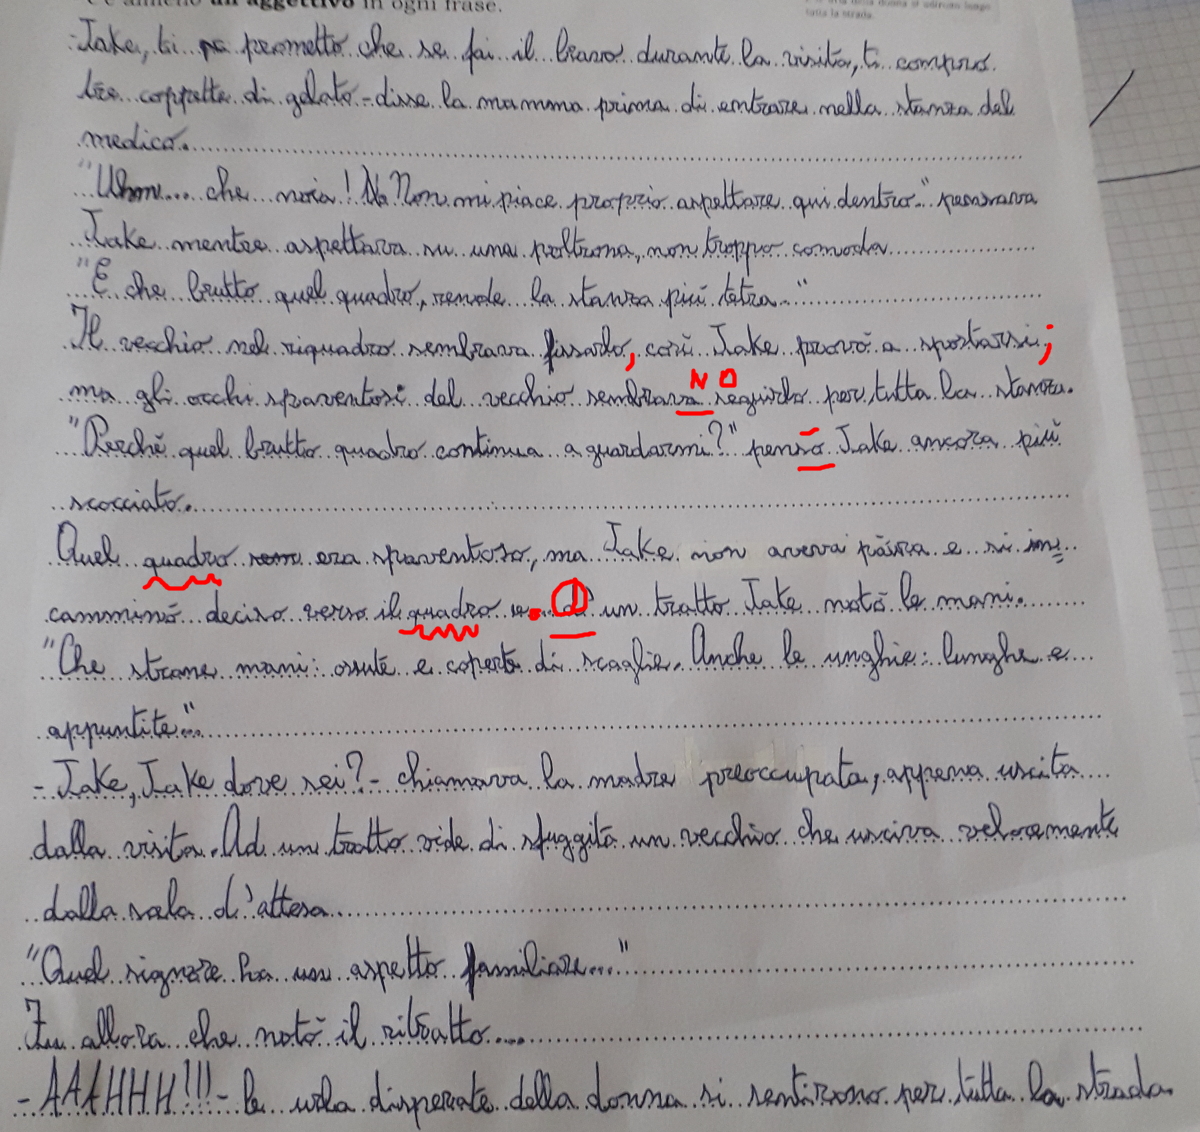 c'è almeno un aggettivo in ogni frase.
tutta la strada.
-Jake, ti prometto che se fai il bravo durante la visita, ti compro
tre coppette di gelato - disse la mamma prima di entrare nella stanza del
medico.
"Uhm... che noia! Non mi piace proprio aspettare qui dentro..." pensava
Jake mentre aspettava su una poltrona, non troppo comoda.
"E che brutto quel quadro, rende la stanza più tetra..."
Il vecchio nel riquadro sembrava fissarlo, così Jake provò a spostarsi;
ma gli occhi spaventosi del vecchio sembrava seguirlo per tutta la stanza.
NO
"Perché quel brutto quadro continua a guardarmi?" pensò Jake ancora più
scocciato.
Quel quadro era spaventoso, ma Jake non aveva paura e si in=
camminò deciso verso il quadro e. D un tratto Jake notò le mani.
"Che strane mani: ossute e coperte di scaglie. Anche le unghie: lunghe e
appuntite"...
- Jake, Jake dove sei? - chiamava la madre preoccupata, appena uscita
dalla visita. Ad un tratto vide di sfuggita un vecchio che usciva velocemente
dalla sala d'attesa.
"Quel signore ha un aspetto familiare..."
Fu allora che notò il ritratto....
- AAAHHH!!! - le urla disperate della donna si sentirono per tutta la strada.